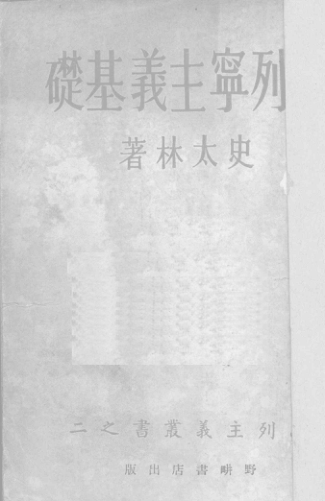 列寧主義基礎
史太林著
列主義叢書之二
野畊書店出版